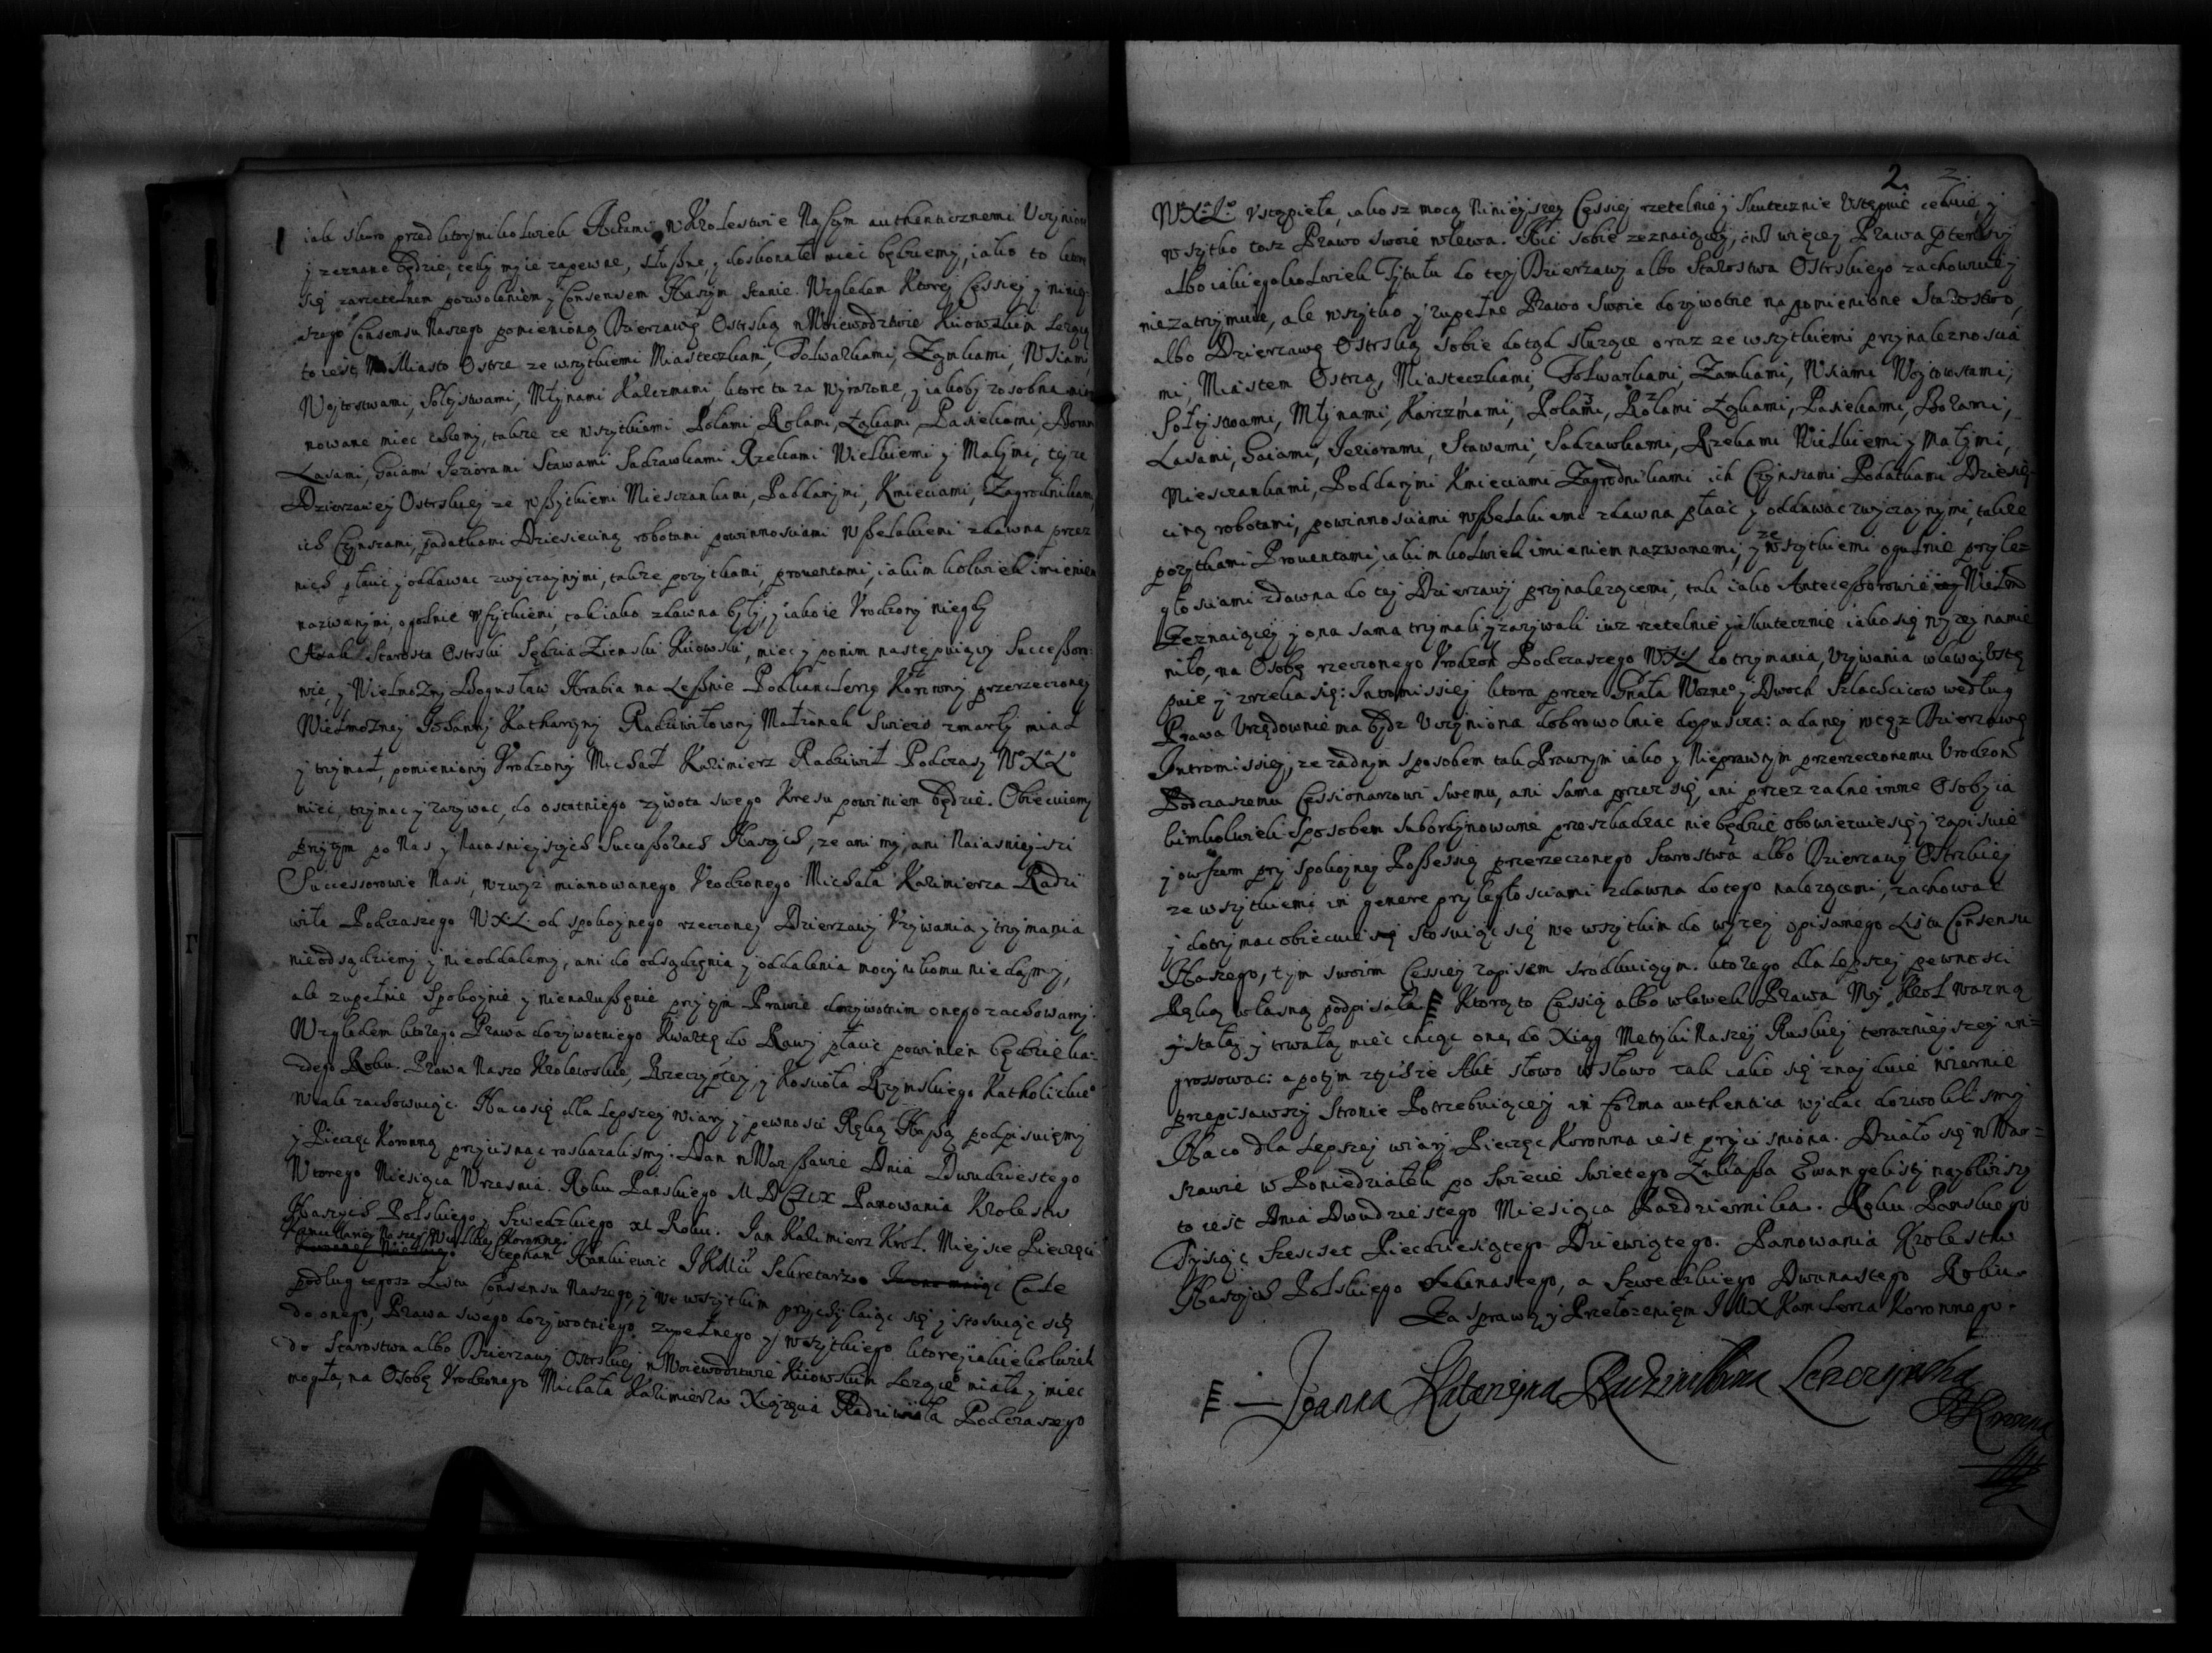 iak skoro przed ktorymikolwiek Aktami w Krolestwie Naszym authenticznemi Uczynion
y zeznane będzie, tedy my ie zapewne, słuszne, y doskonałe mieć będziemy, iako to ktore
się zarzetelnem pozwoleniem y Consensem Naszym stanie. Względem Ktorey Cessiey y niniey-
szego Consensu Naszego pomienioną Dzierzawę Ostrską w Woiewodztwie Kiiowskim Lezącą
to iest Miasto Ostrze ze wszytkiemi Miasteczkami, Folwarkami, Zamkami, Wsiami,
Woytostwami, Sołtystwami, Młynami Karczmami, ktore tu za wyrazone, y iakoby zosobna mia-
nowane miec chcemy, takze ze wszytkiemi Polami Rolami, Łąkami, Pasiekami, Borami
Lasami, Gaiami Jeziorami Stawami Sadzawkami Rzekami Wielkiemi y Małymi, teyze
Dzierzawy Ostrskiey ze wszytkiemi Miesczankami, Poddanymi, Kmieciami, Zagrodnikami,
ich Czynszami, podatkami Dziesieciną robotami powinnosciami wszelakiemi zdawna przez
nich płacic y oddawac zwyczaynymi, takze pozytkami, prouentami, iakimkolwiek imieniem
nazwanymi, ogolnie wszytkiemi, tak iako zdawna były, y iako ie Urodzony niegdy
Axak Starosta Ostrski Sędzia Ziemski Kiiowski, miec y ponim następuiący Successoro-
wie, y Wielmozny Bogusław Hrabia na Lesznie Podkanclerzy Koronny przerzeczoney
Wielmozney Johanny Katharzyny Radziwiłowny Małzonek swiezo zmarły miał
y trzymał, pomieniony Urodzony Michał Kazimierz Radziwił Podczaszy W X L
miec, trzymac y zazywac, do ostatniego zywota swego Kresu powinien będzie. Obiecuiemy
przytym po Nas y Naiasnieyszych Successorach Naszych, ze ani my, ani Naiasnieyszi
Successorowie Nasi, wzwyz mianowanego Urodzonego Michała Kazimierza Radzi
wiła Podczaszego W.X.L. od spokoynego rzeczoney Dzierzawy Uzywania y trzymania
nieodsądziemy y nieoddalemy, ani do odsądzenia y oddalenia mocy nikomu niedaymy,
ale zupełnie Spokoynie y nienaruszenie przytym Prawie dozywotnim onego zachowamy.
Względem ktorego Prawa dozywotniego Kwartę do Rawy płacic powinien będzie ka-
zdego Roku. Prawa Nasze Krolewskie, Rzeczyptey, y Koscioła Rzymskiego Katholickie
wcale zachowuiąc. Na co się dla Lepszey wiary y pewnosci Ręką Naszą podpisuiemy
y Pieczęc Koronną przycisnąc roskazalismy. Dan w Warszawie Dnia Dwudziestego
Wtorego Miesiąca Wrzesnia. Roku Panskiego MDCLIX Panowania Krolestw
Naszych Polskiego y Szwedzkiego XI Roku. Jan Kazimierz Krol. Mieysce Pieczęci
Kancellariey Naszey Wielkiey Koronney
Stephan Hankiewic JKMci Sekretarz Cale
podług tegosz Listu Consensu Naszego, y we wszytkim przychylaiąc się y stosuiąc się
do onego, Prawa swego dozywotniego zupełnego y wszytkiego ktoreyiakiekolwiek
do Starostwa albo Dzierzawy Ostrskiey w Woiewodztwie Kiiowskim Lezące miała y miec
mogła, na Osobę Urodzonego Michała Kazimierza Xiązęcia Radziwiła Podczaszego
2. 2.
W.X.L. Ustąpieła, iakosz mocą Ninieyszey Cessiey rzetelnie y skutecznie Ustępuie celuie y
wszytko tosz Prawo swoie wlewa. Nic sobie zeznaiącey, iusz więcey Prawa
albo iakiegokolwiek Tytułu do tey Dzierzawy albo Starostwa Ostrskiego zachowuiey
niezatrzymuie, ale wszytko y zupełne Prawo Swoie dozywotne na pomienione Starostwo,
albo Dzierzawę Ostrską sobie dotąd słuzące oraz ze wszytkiemi przynaleznoscia
mi, Miastem Ostrzą, Miasteczkami, Folwarkami, Zamkami, Wsiami Woytowstami,
Sołtystwami, Młynami, Karczmami, Polami, Rolami Łąkami, Pasiekami, Borami,
Lasami, Gaiami, Jeziorami, Stawami, Sadzawkami, Rzekami Wielkiemi y Małymi,
Miesczankami, Poddanymi Kmieciami Zagrodnikami ich Czynszami Podatkami Dziesię-
ciną robotami, powinnosciami wszelakiemi zdawna płacic y oddawac zwyczaynymi, takze
pozytkami Prouentami, iakimkolwiek imieniem nazwanemi, y ze wszytkiemi ogulnie przyle-
głosciami zdawna do tey Dzierzawy przynalezącemi, tak iako Antecessorowie Wielm
Zeznaiącey y ona sama trzymali y zazywali iuz rzetelnie y skutecznie iako się wyzey namie
niło, na Osobę rzeczonego Urodzon Podczaszego W.X.L do trzymania, Uzywania wlewa y Ustę
puie y zrzeka się: Intromissiey ktora przez Gnała Wozne y Dwoch Szlachcicow według
Prawa Urzędownie ma bydz Uczyniona dobrowolnie dopuscza: a daney wtęz Dzierzawę
Intromissiey, ze zadnym sposobem tak Prawnym iako y Nieprawnym przerzeczonemu Urodzon
Podczaszemu Cessionarzowi swemu, ani sama przez się, ani przez zadne inne Osoby ia
kimkolwiek Sposobem subordynowane przeszkadzac nie będzie obowiezuie się y zapisuie
y owszem przy spokoyney Possesiey przerzeczonego Starostwa albo Dzierzawy Ostrskiey
ze wszytkiemi in genere przyległosciami zdawna do tego nalezącemi, zachowac
y dotrzymac obiecuie się stosuiąc się we wszytkim do wyzey opisanego Listu Consensu
Naszego, tym swoim Cessiey zapisem srodkuiącym. ktorego dla Lepszey pewnosci
Ręką własną podpisała Ktorą to Cessią albo wlewek Prawa My Krol wazną
y stałą y trwałą miec chcąc onę do Xiąg Metryki Naszey Ruskiey terazniejszey in-
grossowac: a potym tychze Akt słowo wsłowo tak iako się znayduie wiernie
przepisawszy Stronie Potrzebuiącey in forma authentica wydac dozwolilismy
Na co dla Lepszey wiary Pieczęc Koronna iest przycisniona. Działo się w War-
szawie w Poniedziałek po swiecie swietego Łukasza Ewangelisty nayblizszy
to iest Dnia Dwudziestego Miesiąca Pazdziernika. Roku Panskiego
Tysiąc szescset Piecdziesiątego Dziewiątego. Panowania Krolestw
Naszych Polskiego Iedenastego, a Szwedzkiego Dwunastego Roku.
Za sprawą y Przełozeniem J M X Kanclerza Koronnego.
Joanna Katarzyna Radziwiłowna Leszczynska
P Koronna